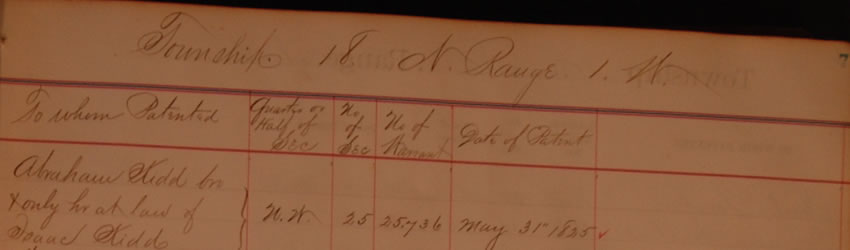 Township 18 N. Range 1. W.
To whom Patented
Quarter or Half of Sec
No of Sec
No of Warrant
Date of Patent
Abraham Kidd bro
& only hr at law of
Isaac Kidd
N. W. 25 25.736 May 31st 1825